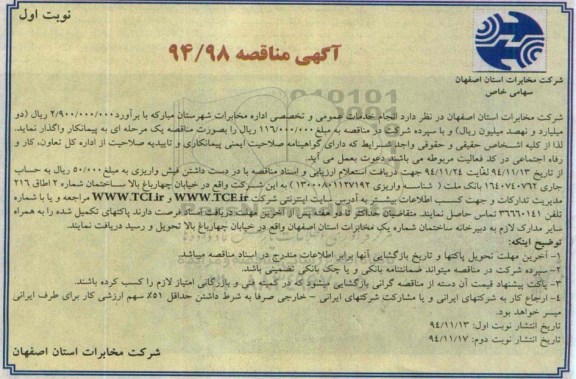 نوبت اول
آگهی مناقصه ۹۴/۹۸
شرکت مخابرات استان اصفهان
سهامی خاص
شرکت مخابرات استان اصفهان در نظر دارد انجام خدمات عمومی و تخصصی اداره مخابرات شهرستان مبارکه با برآورد ۲/۹۰۰/۰۰۰/۰۰۰ ریال (دو
میلیارد و نهصد میلیون ریال) و با سپرده شرکت در مناقصه به مبلغ ۱۱۶/۰۰۰/۰۰۰ ریال را بصورت مناقصه یک مرحله ای به پیمانکار واگذار نماید.
لذا از کلیه اشخاص حقیقی و حقوقی واجد شرایط که دارای گواهینامه صلاحیت ایمنی پیمانکاری و تاییدیه صلاحیت از اداره کل تعاون، کار و
رفاه اجتماعی در کد فعالیت مربوطه می باشند دعوت بعمل می آید.
از تاریخ ۹۴/۱۱/۱۳ لغایت ۹۴/۱۱/۲۴ جهت دریافت استعلام ارزیابی و اسناد مناقصه با در دست داشتن فیش واریزی به مبلغ ۵۰/۰۰۰ ریال به حساب
جاری ۱۶۴۰۷۴۰۷۶۲ بانک ملت ( شناسه واریزی ۱۳۰۰۰۸۰۱۱۲۷۱۹۲ ) به این شرکت واقع در خیابان چهارباغ بالا ساختمان شماره ۲ اطاق ۲۱۶
مدیریت تدارکات و جهت کسب اطلاعات بیشتر به آدرس سایت اینترنتی شرکت WWW.TCE.ir و WWW.TCI.ir مراجعه و یا با شماره
تلفن ۳۶۶۶۰۱۴۱ تماس حاصل نمایند. متقاضیان حداکثر تا دو هفته پس از آخرین مهلت دریافت اسناد فرصت دارند پاکتهای تکمیل شده را به همراه
سایر مدارک لازم به دبیرخانه ساختمان شماره یک مخابرات استان اصفهان واقع در خیابان چهارباغ بالا تحویل و رسید دریافت نمایند.
توضیح اینکه:
۱- آخرین مهلت تحویل پاکتها و تاریخ بازگشایی آنها برابر اطلاعات مندرج در اسناد مناقصه میباشد.
۲- سپرده شرکت در مناقصه میتواند ضمانتنامه بانکی و یا چک بانکی تضمینی باشد.
۳- پاکت پیشنهاد قیمت آن دسته از مناقصه گرانی بازگشایی میشود که در کمیته فنی و بازرگانی امتیاز لازم را کسب کرده باشند.
۴- ارجاع کار به شرکتهای ایرانی و یا مشارکت شرکتهای ایرانی - خارجی صرفا به شرط داشتن حداقل ۵۱٪ سهم ارزشی کار برای طرف ایرانی
میسر خواهد بود.
تاریخ انتشار نوبت اول: ۹۴/۱۱/۱۳
تاریخ انتشار نوبت دوم: ۹۴/۱۱/۱۷
شرکت مخابرات استان اصفهان